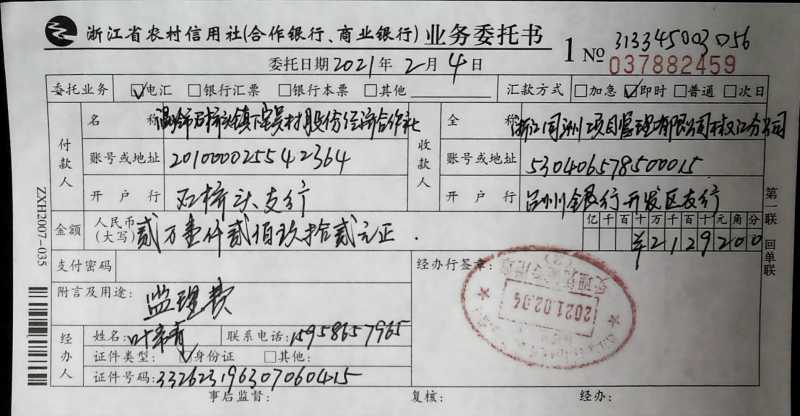 浙江省农村信用社(合作银行、商业银行)业务委托书
1 №
313345003056
037882459
委托日期2021年2月4日
委托业务 电汇 银行汇票 银行本票 其他
汇款方式 加急 即时 普通 次日
付款人
名称 温岭市石桥头镇下宅吴村股份经济合作社
账号或地址 201000025542364
开户行 石桥头支行
收款人
全称 浙江同洲项目管理有限公司椒江分公司
账号或地址 530406578500015
开户行 台州银行开发区支行
金额 人民币(大写) 贰万壹仟贰佰玖拾贰元正
亿千百十万千百十元角分
¥2129200
支付密码
经办行签章:
附言及用途: 监理费
2021.02.04
经办人
姓名: 联系电话: 15958657965
证件类型: 身份证 其他:
证件号码: 332623196307060415
事后监督: 复核: 经办:
ZXH2007-035
第一联 回单联